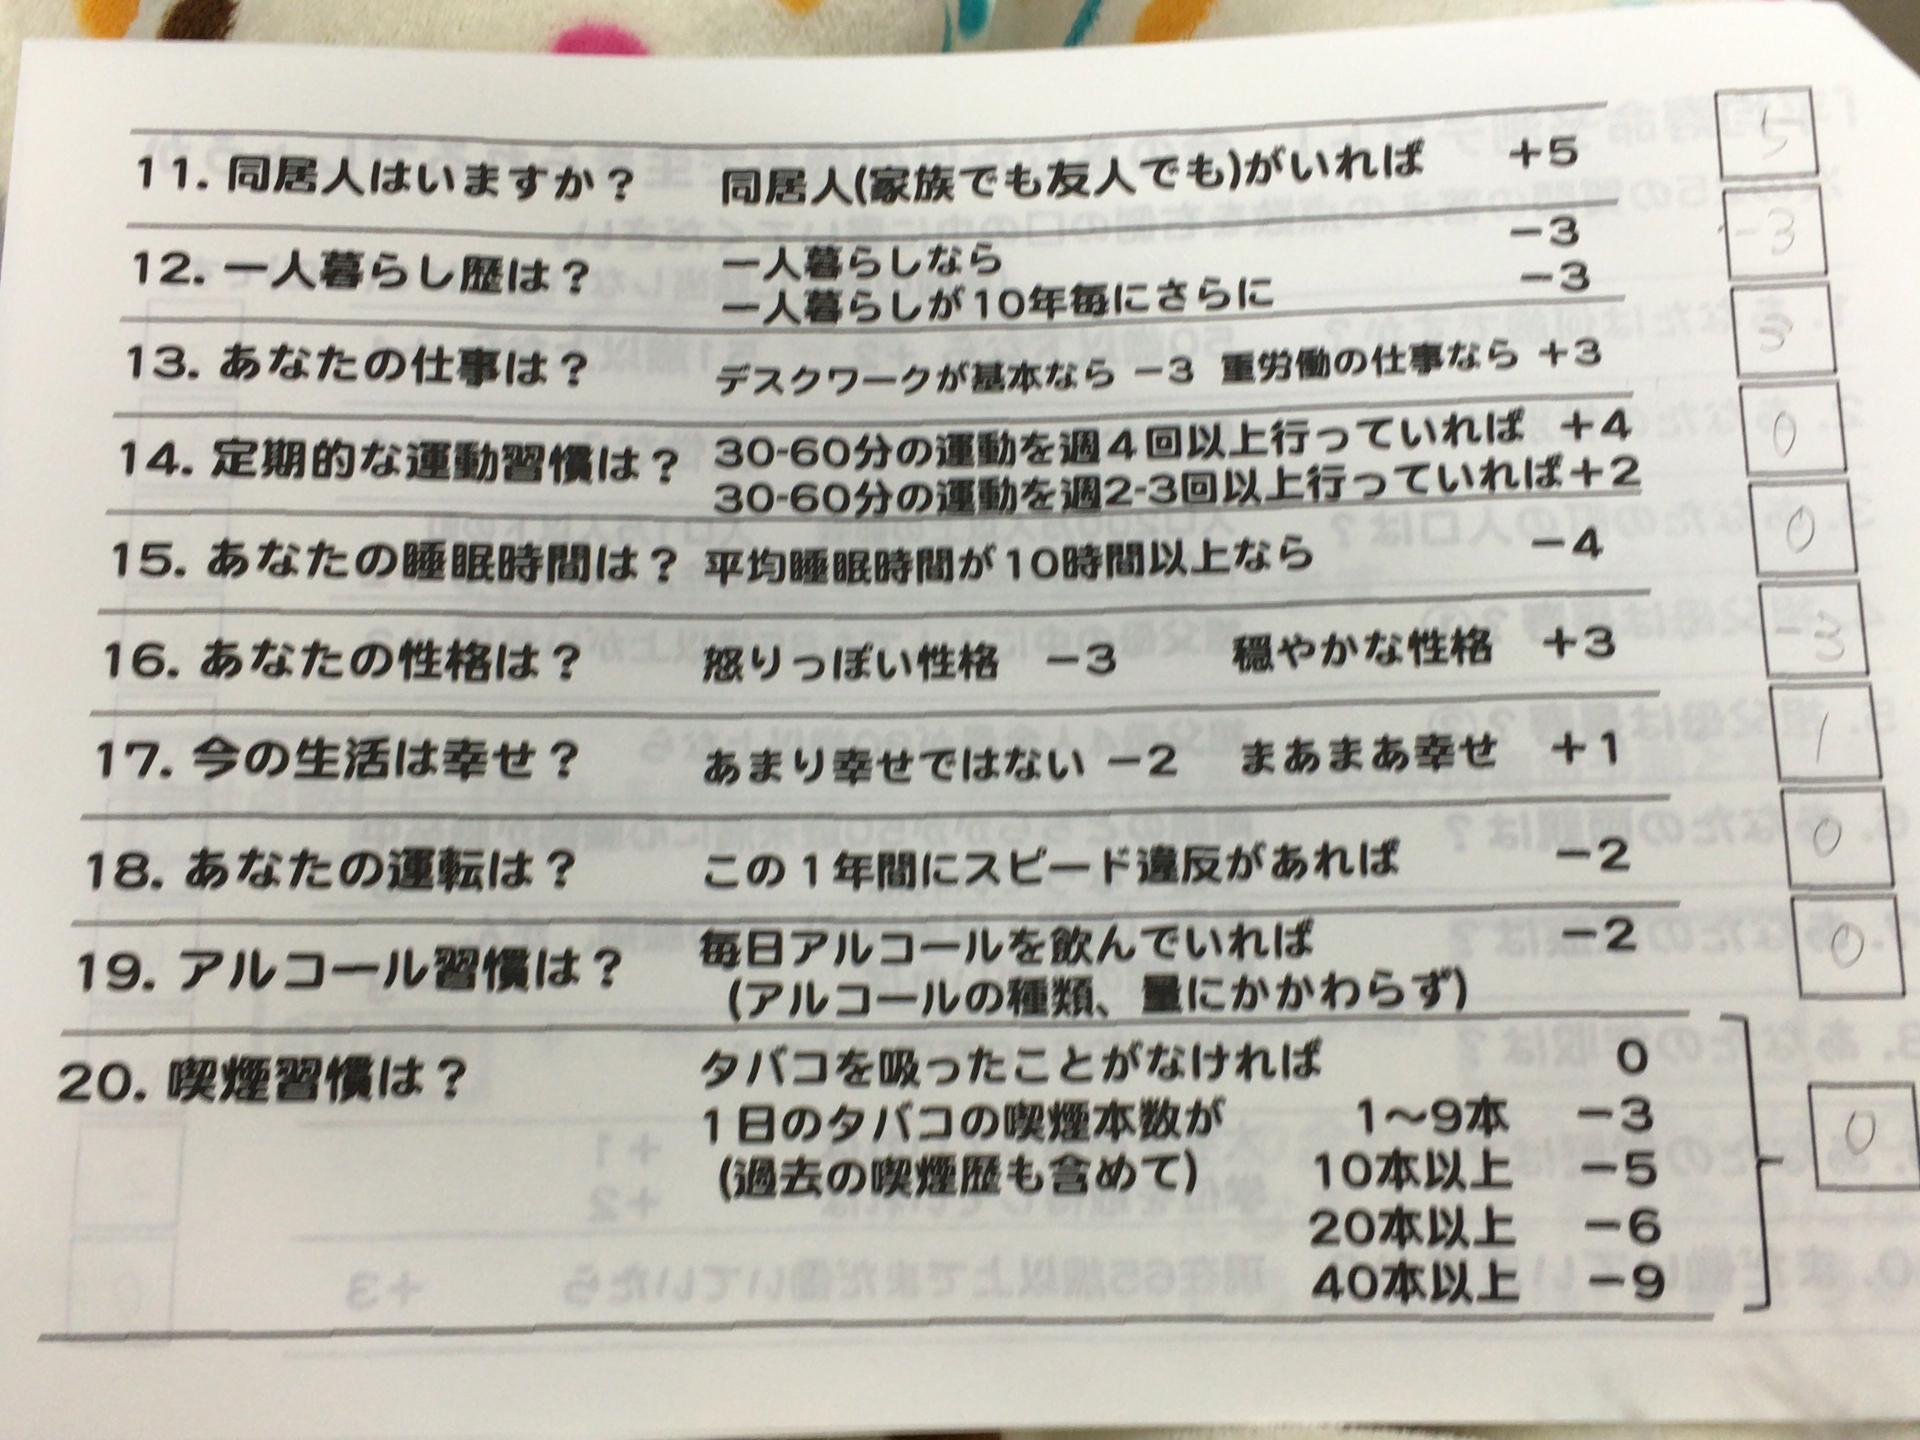 11. 同居人はいますか？ 同居人(家族でも友人でも)がいれば +5 5
12. 一人暮らし歴は？ 一人暮らしなら −3 -3
一人暮らしが10年毎にさらに −3
13. あなたの仕事は？ デスクワークが基本なら −3 重労働の仕事なら +3 3
14. 定期的な運動習慣は？ 30-60分の運動を週4回以上行っていれば +4 0
30-60分の運動を週2-3回以上行っていれば+2
15. あなたの睡眠時間は？ 平均睡眠時間が10時間以上なら −4 0
16. あなたの性格は？ 怒りっぽい性格 −3 穏やかな性格 +3 -3
17. 今の生活は幸せ？ あまり幸せではない −2 まあまあ幸せ +1 1
18. あなたの運転は？ この1年間にスピード違反があれば −2 0
19. アルコール習慣は？ 毎日アルコールを飲んでいれば −2 0
(アルコールの種類、量にかかわらず)
20. 喫煙習慣は？ タバコを吸ったことがなければ 0
1日のタバコの喫煙本数が 1〜9本 −3 0
(過去の喫煙歴も含めて) 10本以上 −5
20本以上 −6
40本以上 −9